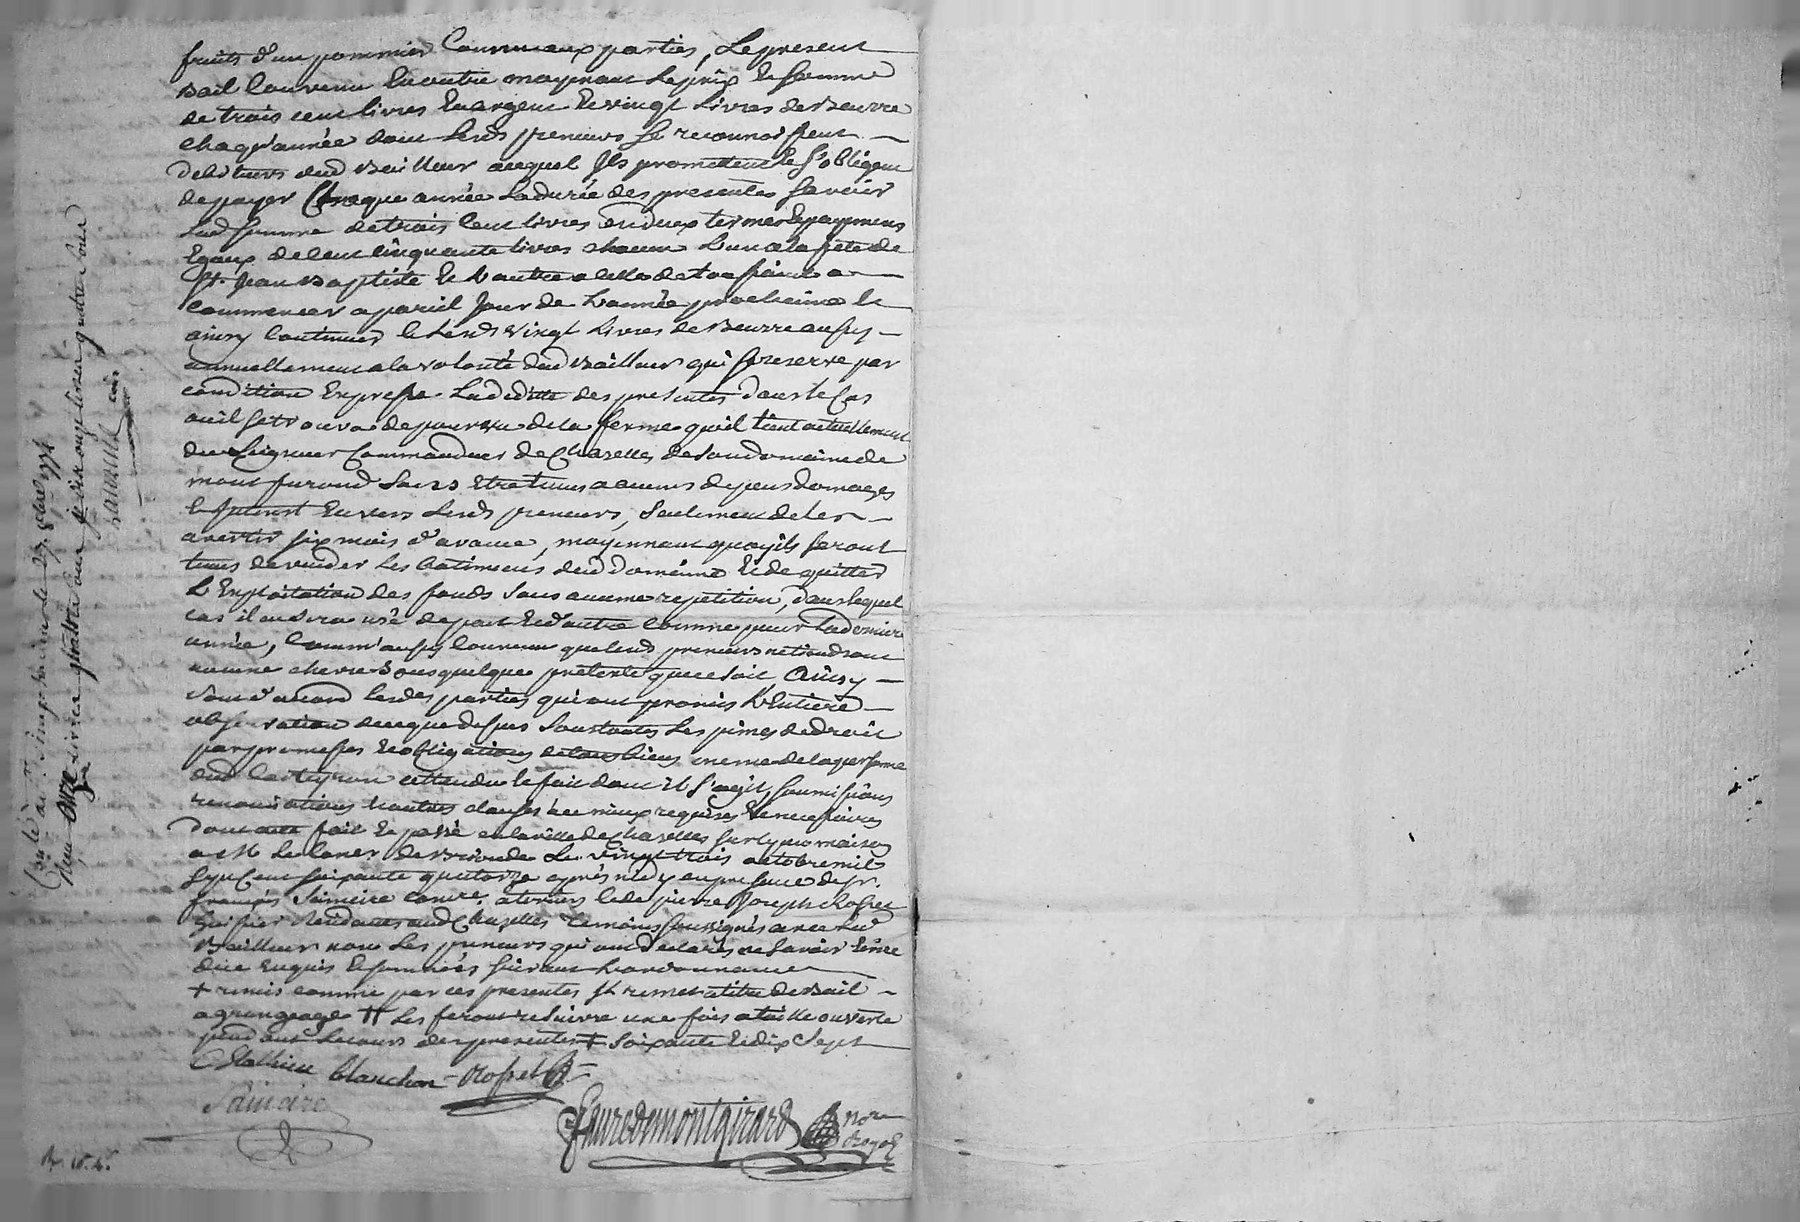 fruits d'un pommier Commun aux parties, Le present
Bail Convenu En outre moyenant Le prix Et somme
de trois cent livres En argent Et vingt Livres de Beurre
chaqu'année dont Lesds preneurs se reconnoissent
debiteurs dud Bailleur auquel Ils promettent Et s'obligent
de payer Chaque année La durée des presentes savoir
Lad somme de trois Cent livres en deux termes Et payemens
Egaux de Cent Cinquante livres chacun L'un a la fete de
St. Jean Baptiste Et L'autre a celle de toussaint a
Commencer a pareil Jour de L'année prochaine Et
ainsy Continuer Et Lesds vingt Livres de Beurre aussy
annuellement a la volonté dud Bailleur qui se reserve par
condition Expresse La deditte des presentes dans le Cas
ou il se trouva depourvu de la ferme qu'il tient actuellement
du Seigneur Commandeur de Chazelles de son domaine de
mont sans Etre tenus a aucuns depens domages
Et Interest Envers Lesds preneurs, seulement de les
avertir six mois d'avance, moyennant quoy ils seront
tenus de vuider Les Batiments dud Domaine Et de quitter
L'Exploitation des fonds sans aucune repetition, dans lequel
cas il en sera usé de part Et d'autre Comme pour La derniere
année, Comm'aussy Convenu que lesds preneurs ne tiendront
aucune chevre sous quelque pretexte que ce soit Ainsy
sont d'acord Lesdes parties qui ont promis L'Entiere
observation de ce que dessus sous toutes Les peines de droit
par promesses Et obligations de tous biens meme de la personne
dud attendu le fait dont Il s'agit, soumissions
renonciations Et autres clauses au mieux requises Et necessaires
Dont acte fait Et passé en la ville de Chazelles sur Lyon maison
a Mr Le Le vingt trois octobre mil
sept Cent soixante quatorze après midy en presence de sr.
françois Et de pierre Joseph Rosset
huissier aud Chazelles temoins soussignés avec Led
Bailleur non Les preneurs qui ont declarés ne savoir Ecrire
de ce Enquis Et sommées suivant L'ordonnance
+ remis comme par ces presentes Il remet a titre de Bail
a grangeage †† Les feront resuivre une fois a taille ouverte
pendant Le cours des presentes + soixante Et dix sept
Mathieu Blanchon Rosset
faure de montgirard Nore
Royal
Conlé a St. Simphorien le 27. 8bre 1774